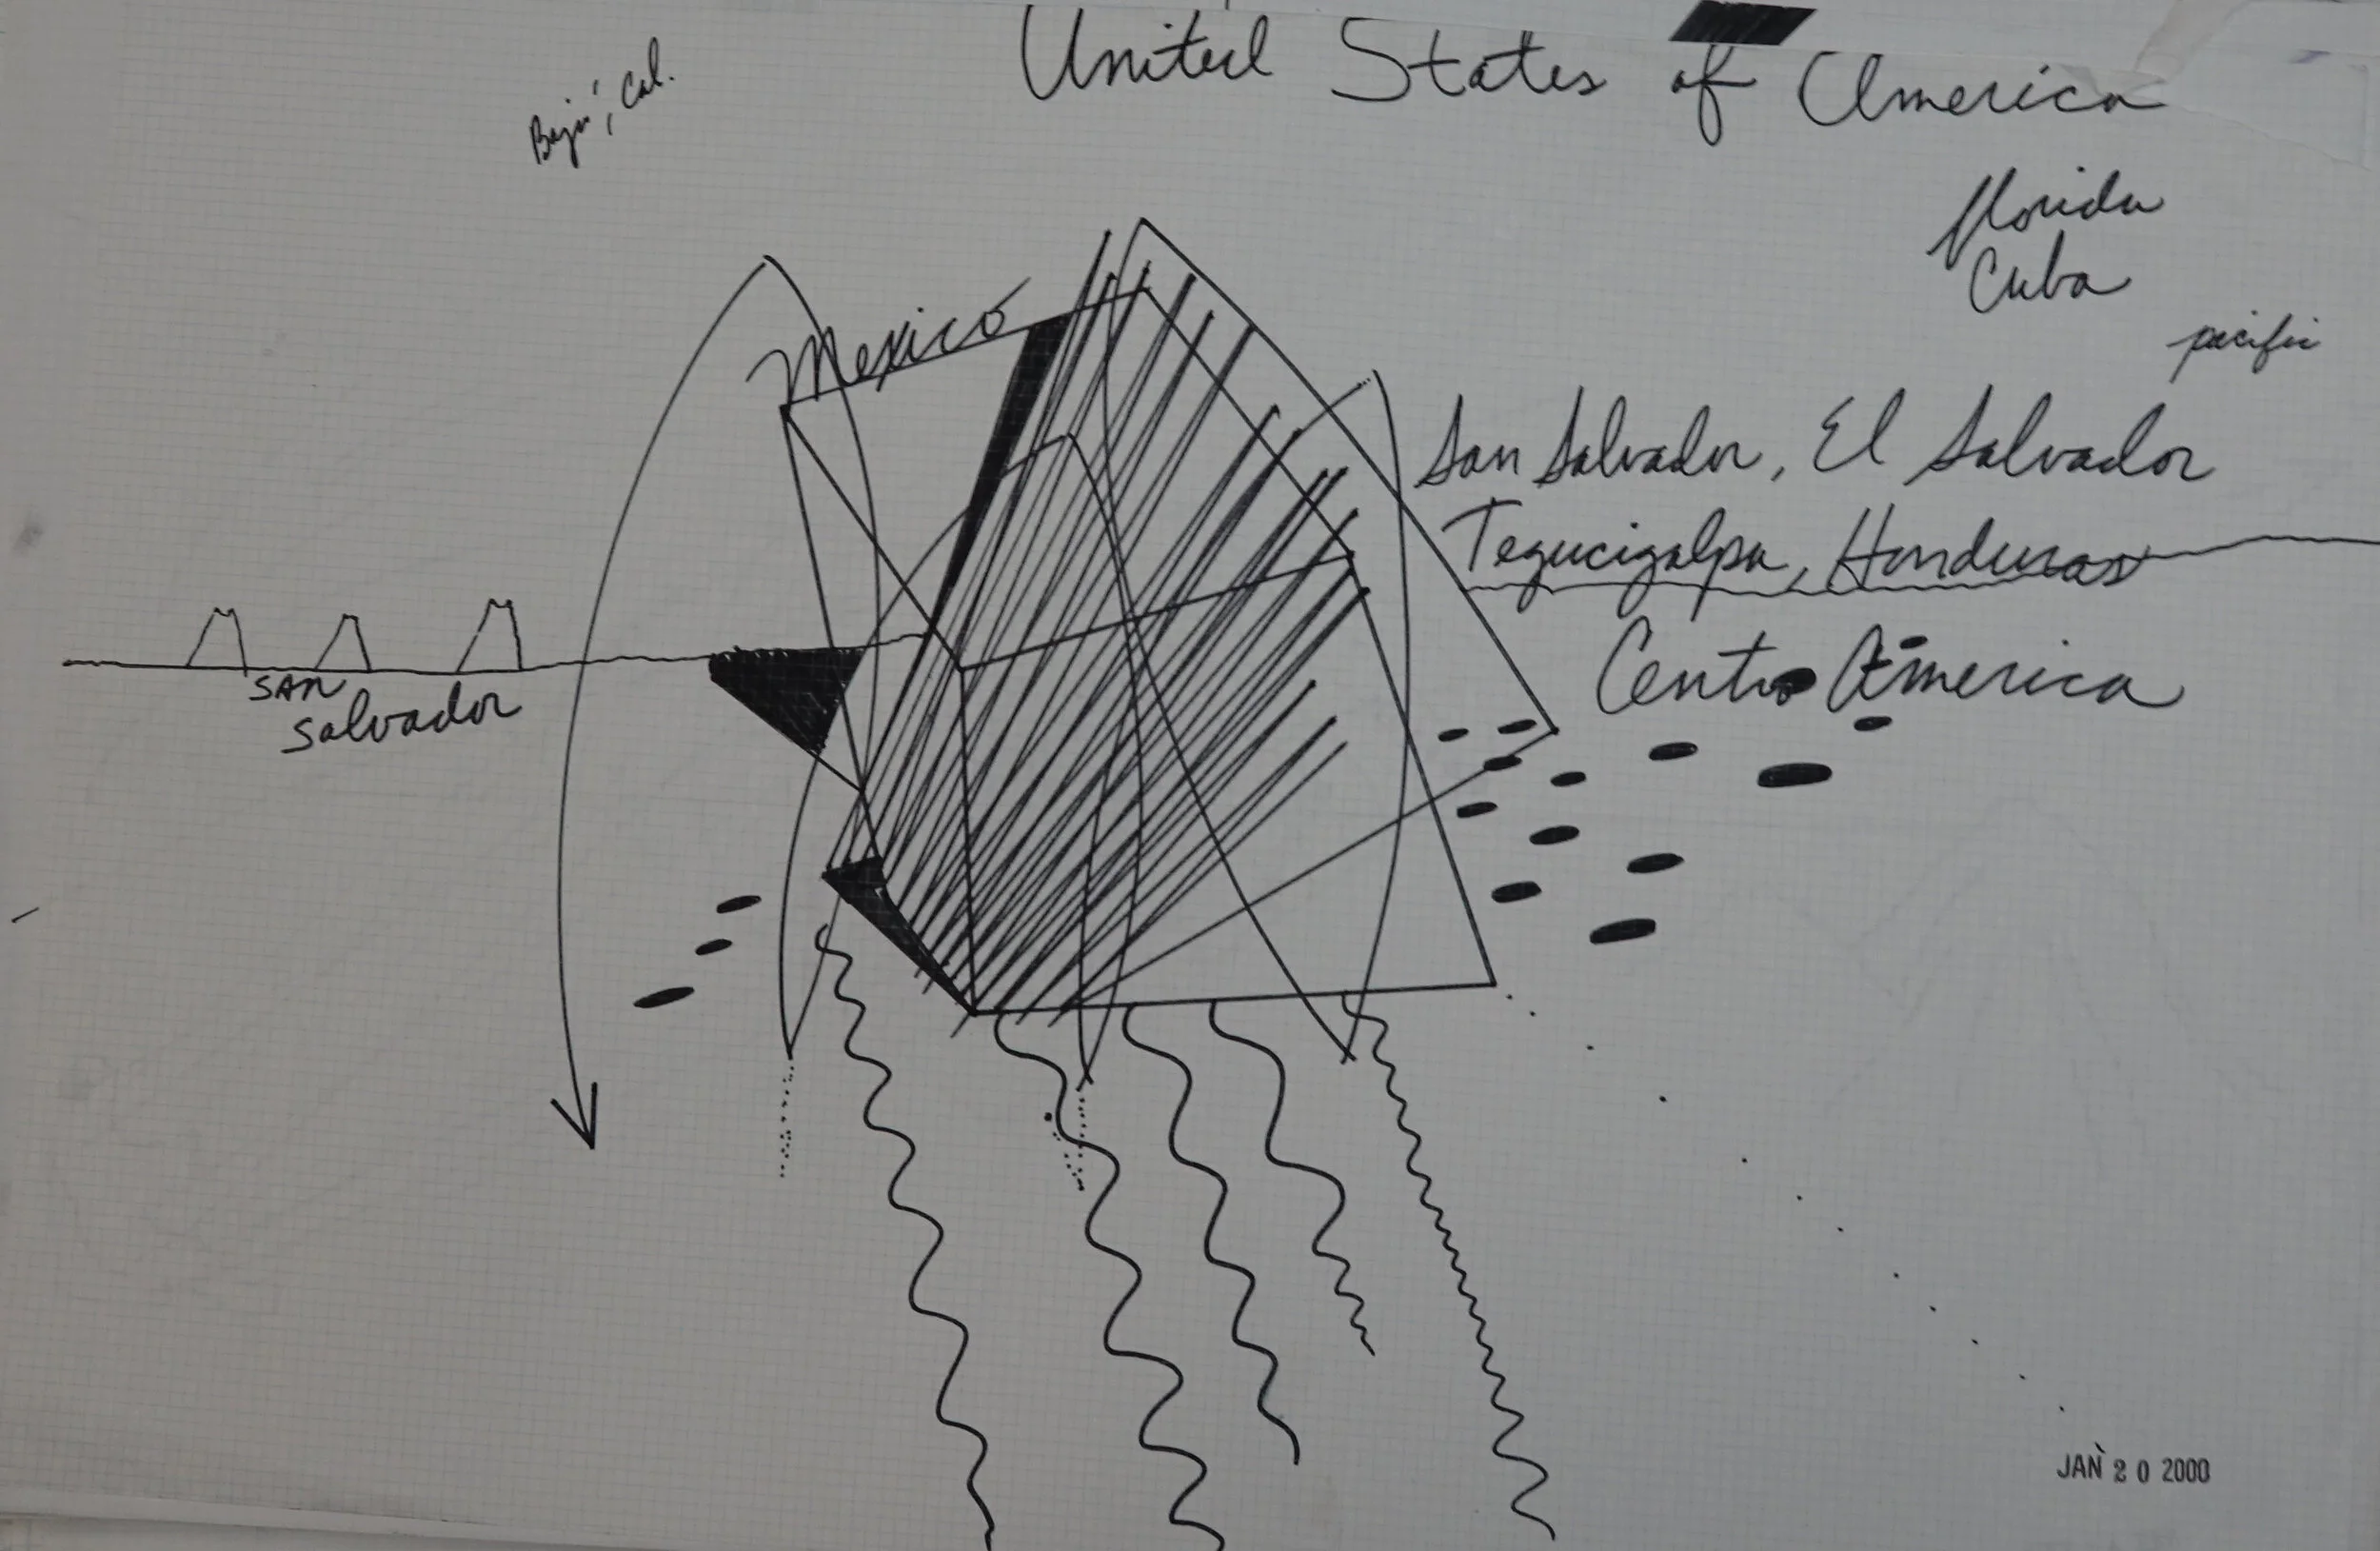 United States of America
Baja, Cal.
Florida
Cuba
pacific
Mexico
San Salvador, El Salvador
Tegucigalpa, Honduras
Centro America
SAN
Salvador
JAN 20 2000